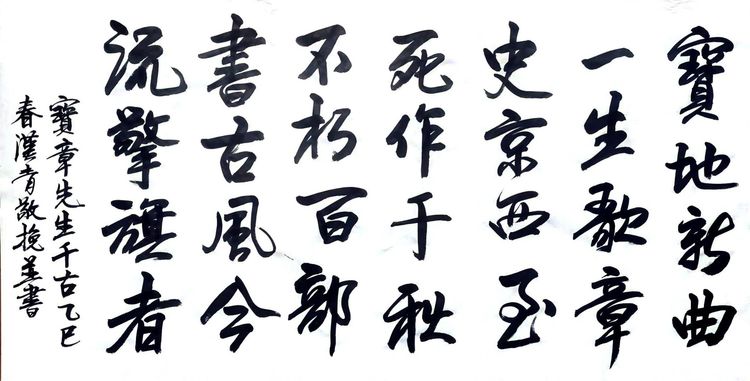 寶地新曲
一生歌章
史京西至
死作千秋
不朽百部
書古風今
流擎旗者
寶章先生千古乙巳
春漢青敬挽並書